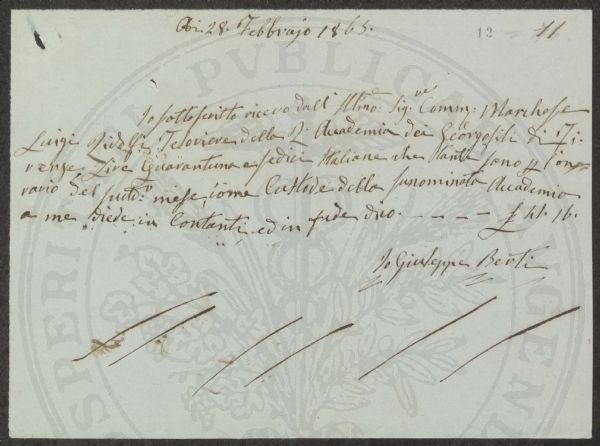 Addi 28. Febbrajo 1865.
12 11
Io sottoscritto ricevo dall' Illmo: Sig:re Comm: Marchese
Luigi Ridolfi Tesoriere della R. Academia dei Georgofili di Fi=
renze Lire Quarantuna e sedici Italiane che tante sono p ono=
rario del sudd:o mese come Custode della sunominata Academia
a me diede in Contanti ed in fede dico. - - - - £ 41. 16.
Io Giuseppe Berti
PUBLICA
PROSPERI